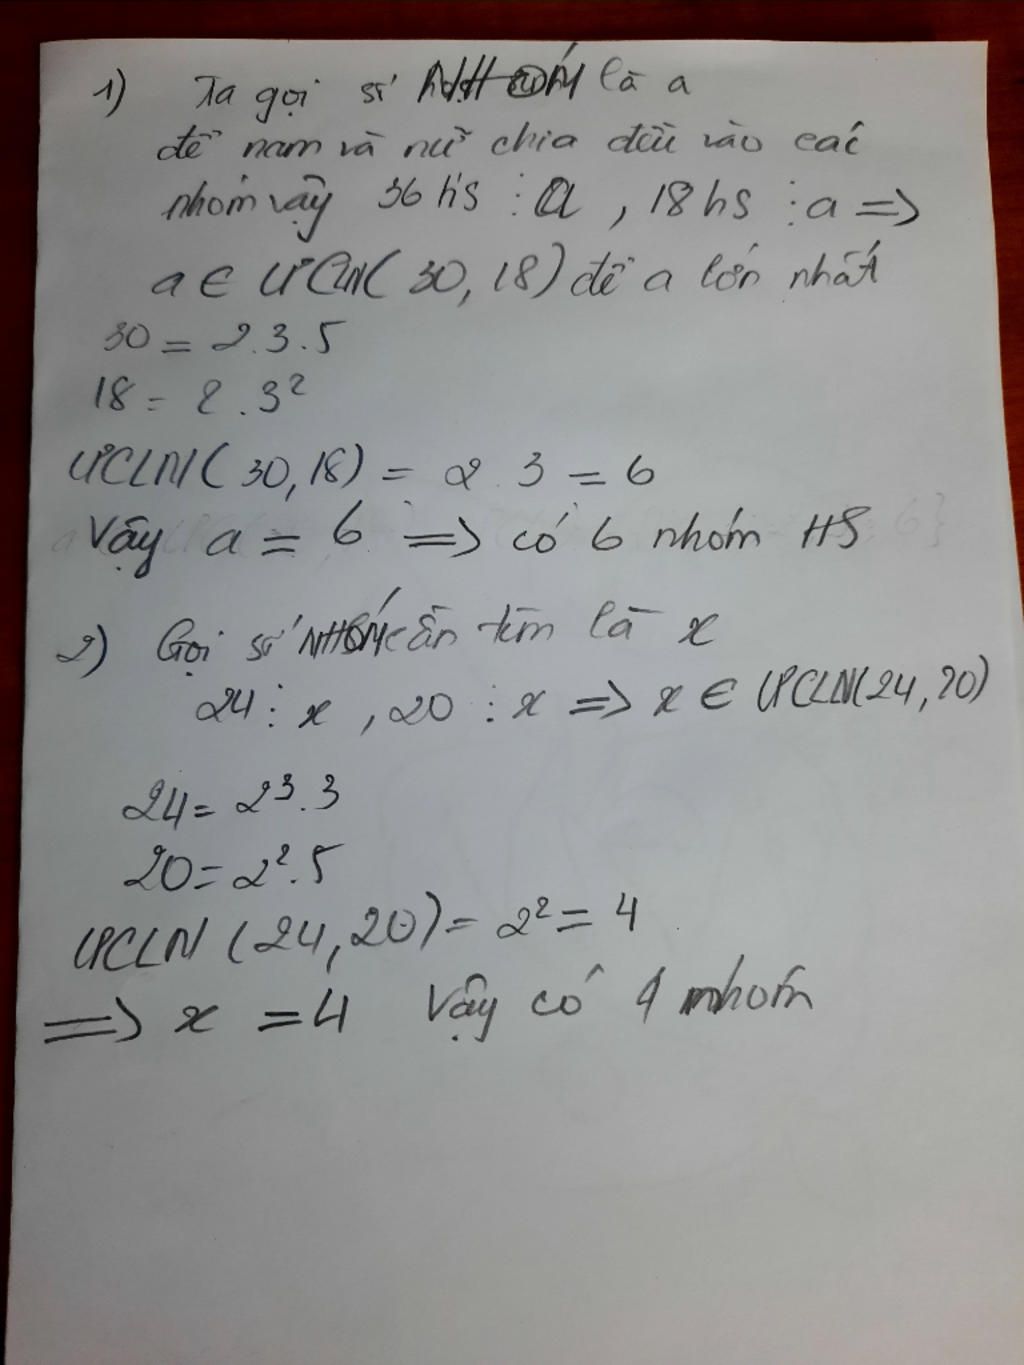 1) Ta gọi số NHÓM là a
để nam và nữ chia đều vào các
nhóm vậy 36 hs ⋮ a , 18 hs ⋮ a =>
a ∈ ƯCLN( 30, 18) để a lớn nhất
30 = 2.3.5
18 = 2 . 3²
ƯCLN( 30, 18) = 2 . 3 = 6
Vậy a = 6 => có 6 nhóm HS
2) Gọi số NHÓM cần tìm là x
24 ⋮ x , 20 ⋮ x => x ∈ ƯCLN(24, 20)
24 = 2³. 3
20 = 2². 5
ƯCLN (24, 20) = 2² = 4
=> x = 4 Vậy có 4 nhóm